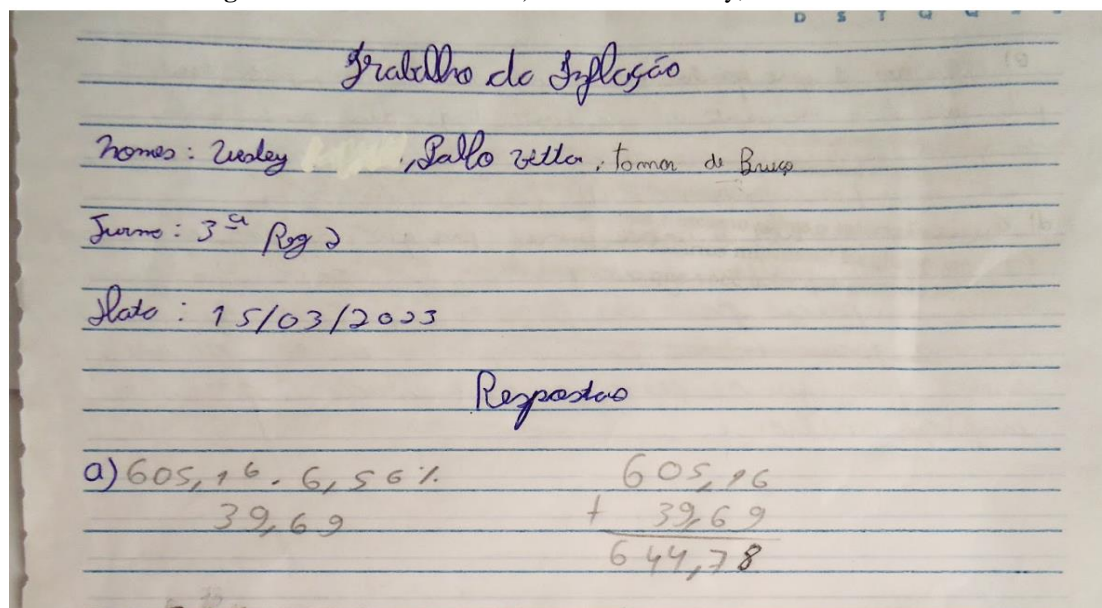 D S T Q Q
Trabalho da Inflação
Nomes: Wesley , Pablo Vittar, tomar de Bruço
Turma: 3ª Reg 2
Data: 15/03/2023
Respostas
a) 605,16 . 6,56% 605,16
39,69 + 39,69
644,78